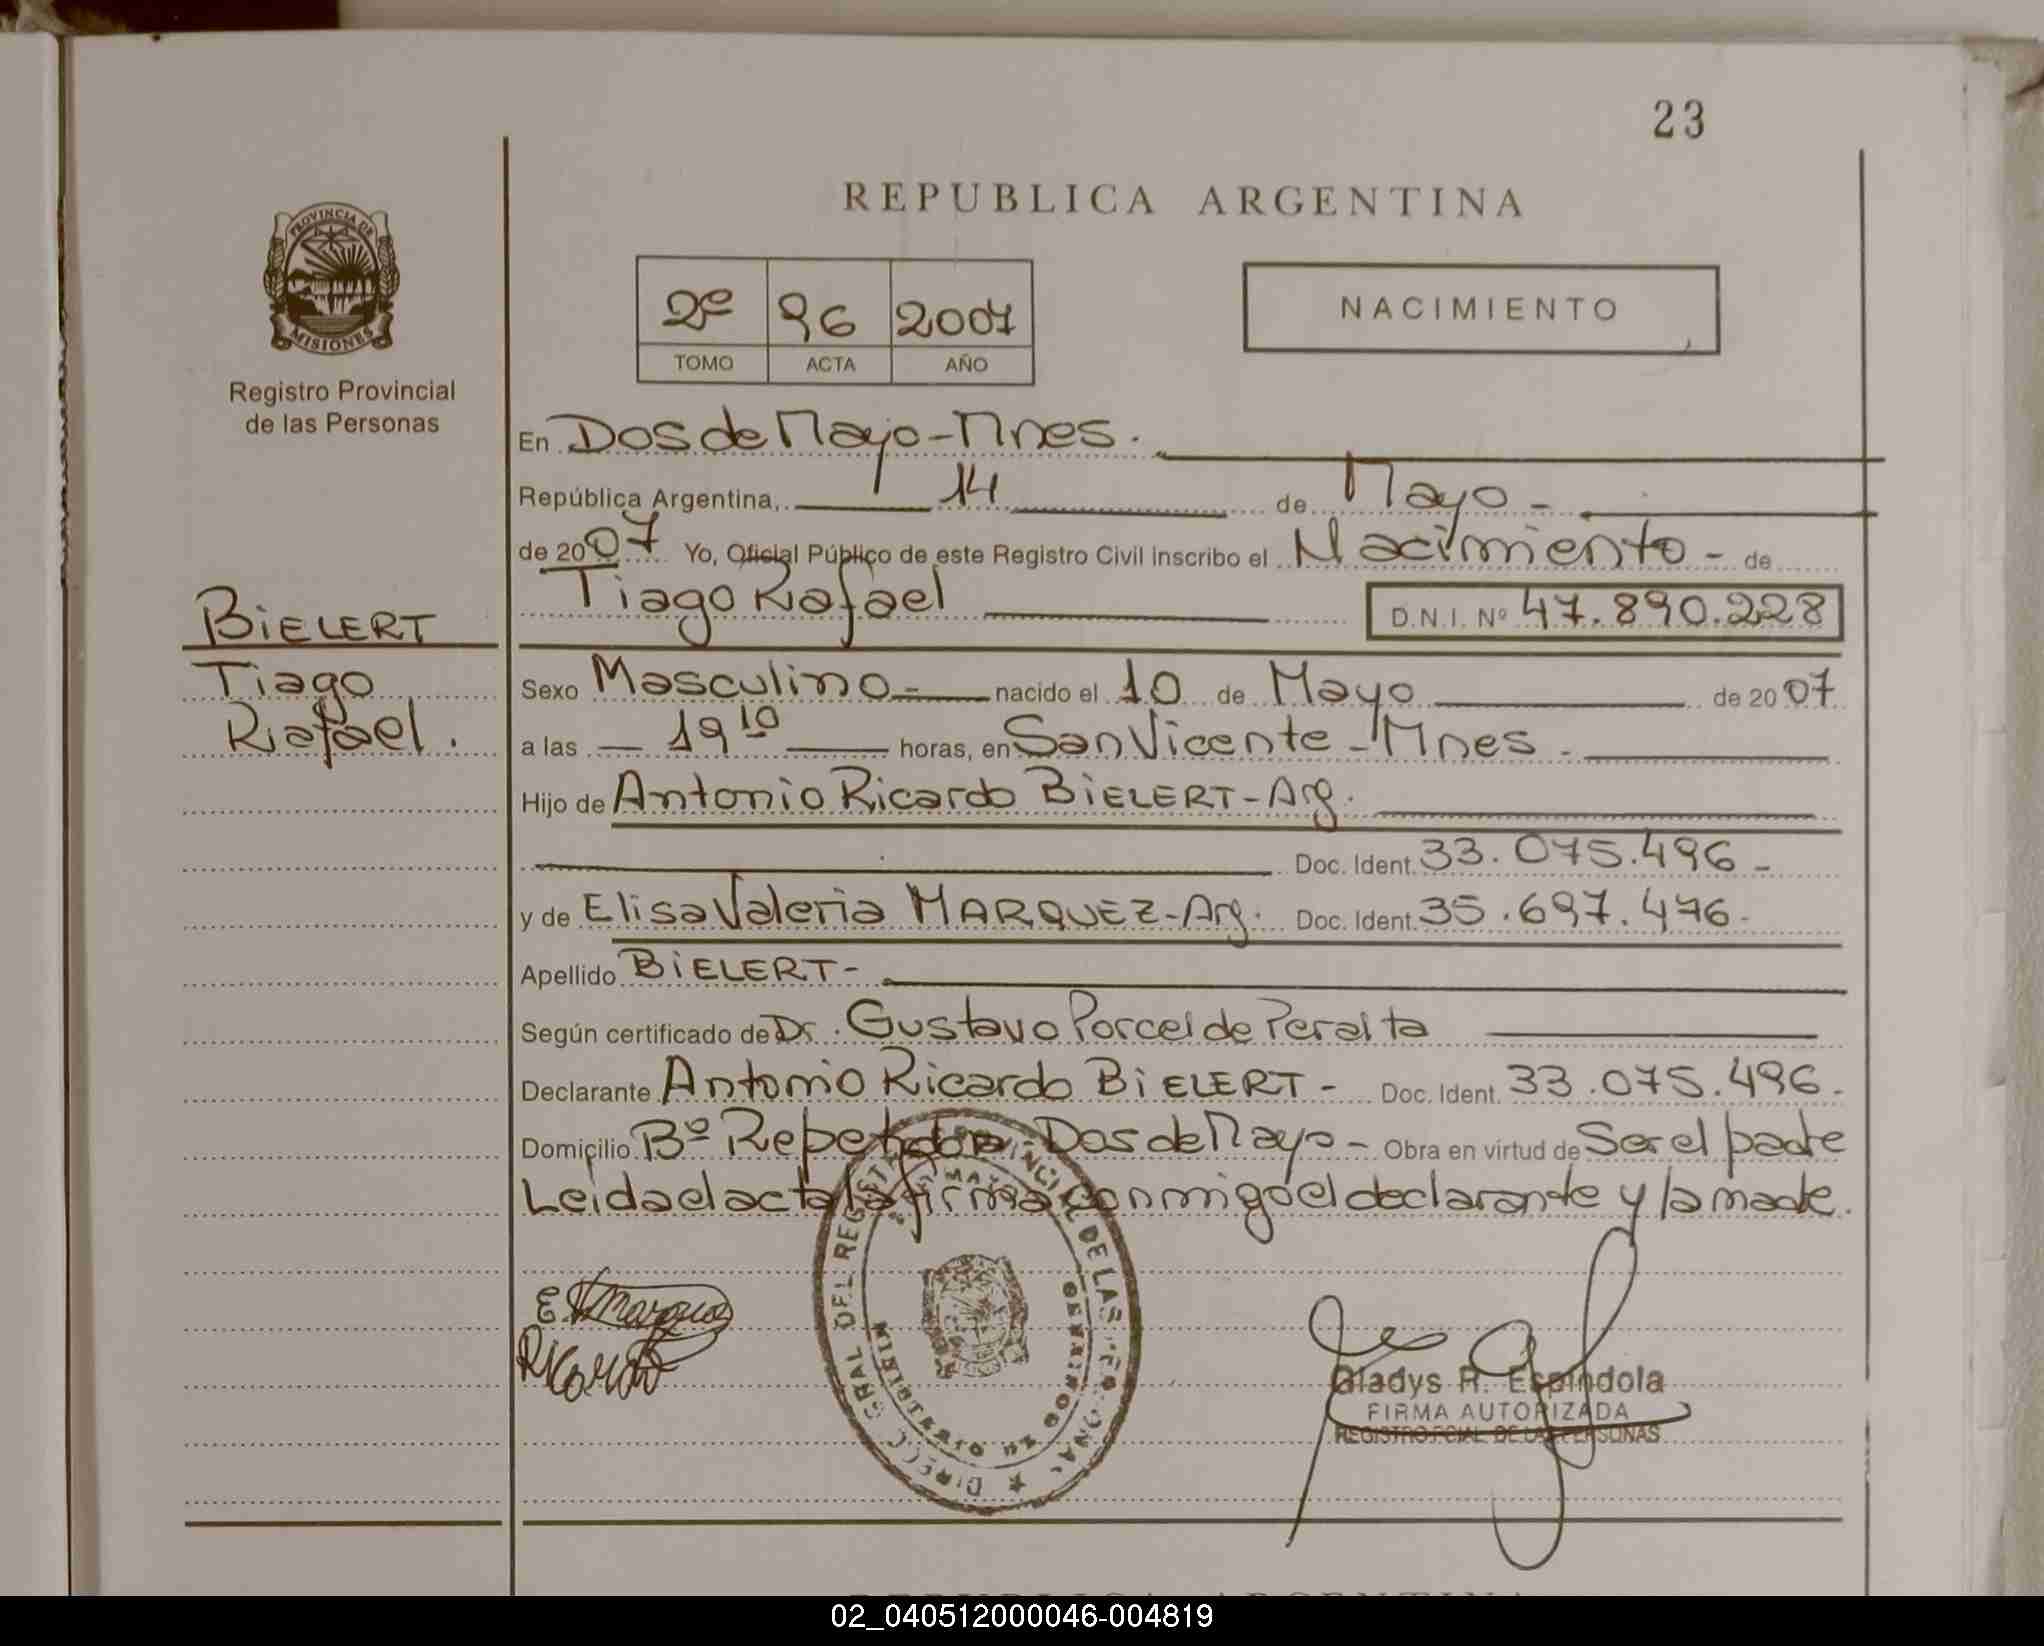 23
REPUBLICA ARGENTINA
PROVINCIA DE
MISIONES
Registro Provincial
de las Personas
2º 96 2007
TOMO ACTA AÑO
NACIMIENTO
En Dos de Mayo - Mnes.
República Argentina, 14 de Mayo -
de 2007 Yo, Oficial Público de este Registro Civil inscribo el Nacimiento - de
Tiago Rafael D.N.I. Nº 47.890.228
BiELERT
Tiago
Rafael.
Sexo Masculino - nacido el 10 de Mayo de 2007
a las 19 10 horas, en San Vicente - Mnes -
Hijo de Antonio Ricardo BiELERT - Arg.
Doc. Ident. 33.075.496 -
y de Elisa Valeria MARQUEZ - Arg. Doc. Ident. 35.697.476 -
Apellido BiELERT -
Según certificado de Dr. Gustavo Porcel de Peralta
Declarante Antonio Ricardo BiELERT - Doc. Ident. 33.075.496 -
Domicilio Bº Repetidora Dos de Mayo - Obra en virtud de Ser el padre
Leida el acta la firma conmigo el declarante y la madre.
E. V Marquez
Ricardo
Gladys R. Espindola
FIRMA AUTORIZADA
REGISTRO PCIAL. DE LAS PERSONAS
REPUBLICA ARGENTINA
02_040512000046-004819